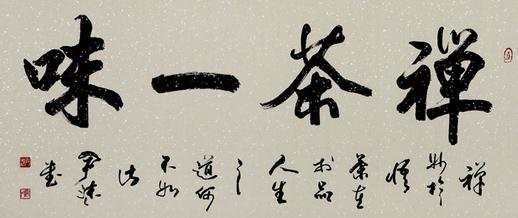 禅茶一味
禅
妙於
悟
茶在
於品
人生
之
道何
不如
尹
书